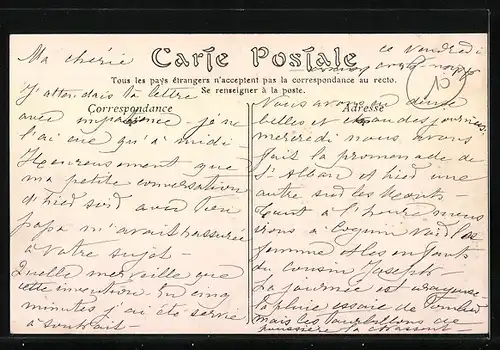 ce Vendredi
Ma chérie
Carte Postale
Tous les pays étrangers n'acceptent pas la correspondance au recto.
Se renseigner à la poste.
Correspondance
Adresse
J'attendais ta lettre
avec impatience je ne
l'ai eue qu'à midi -
Heureusement que
ma petite conversation
d'hier soir avec ton
papa m'avait rassurée
à votre sujet -
Quelle merveille que
cette invention. En cinq
minutes j'ai été servie
à souhait -
Vous avons eu deux
belles et chaudes journées.
mercredi nous avons
fait la promenade de
St Alban et hier une
autre sur les Monts -
Tout à l'heure nous
irons à voir les
femme et les enfants
du cousin Joseph -
La journée est orageuse
la pluie essaie de tomber
mais les tourbillons de
poussière la chassent